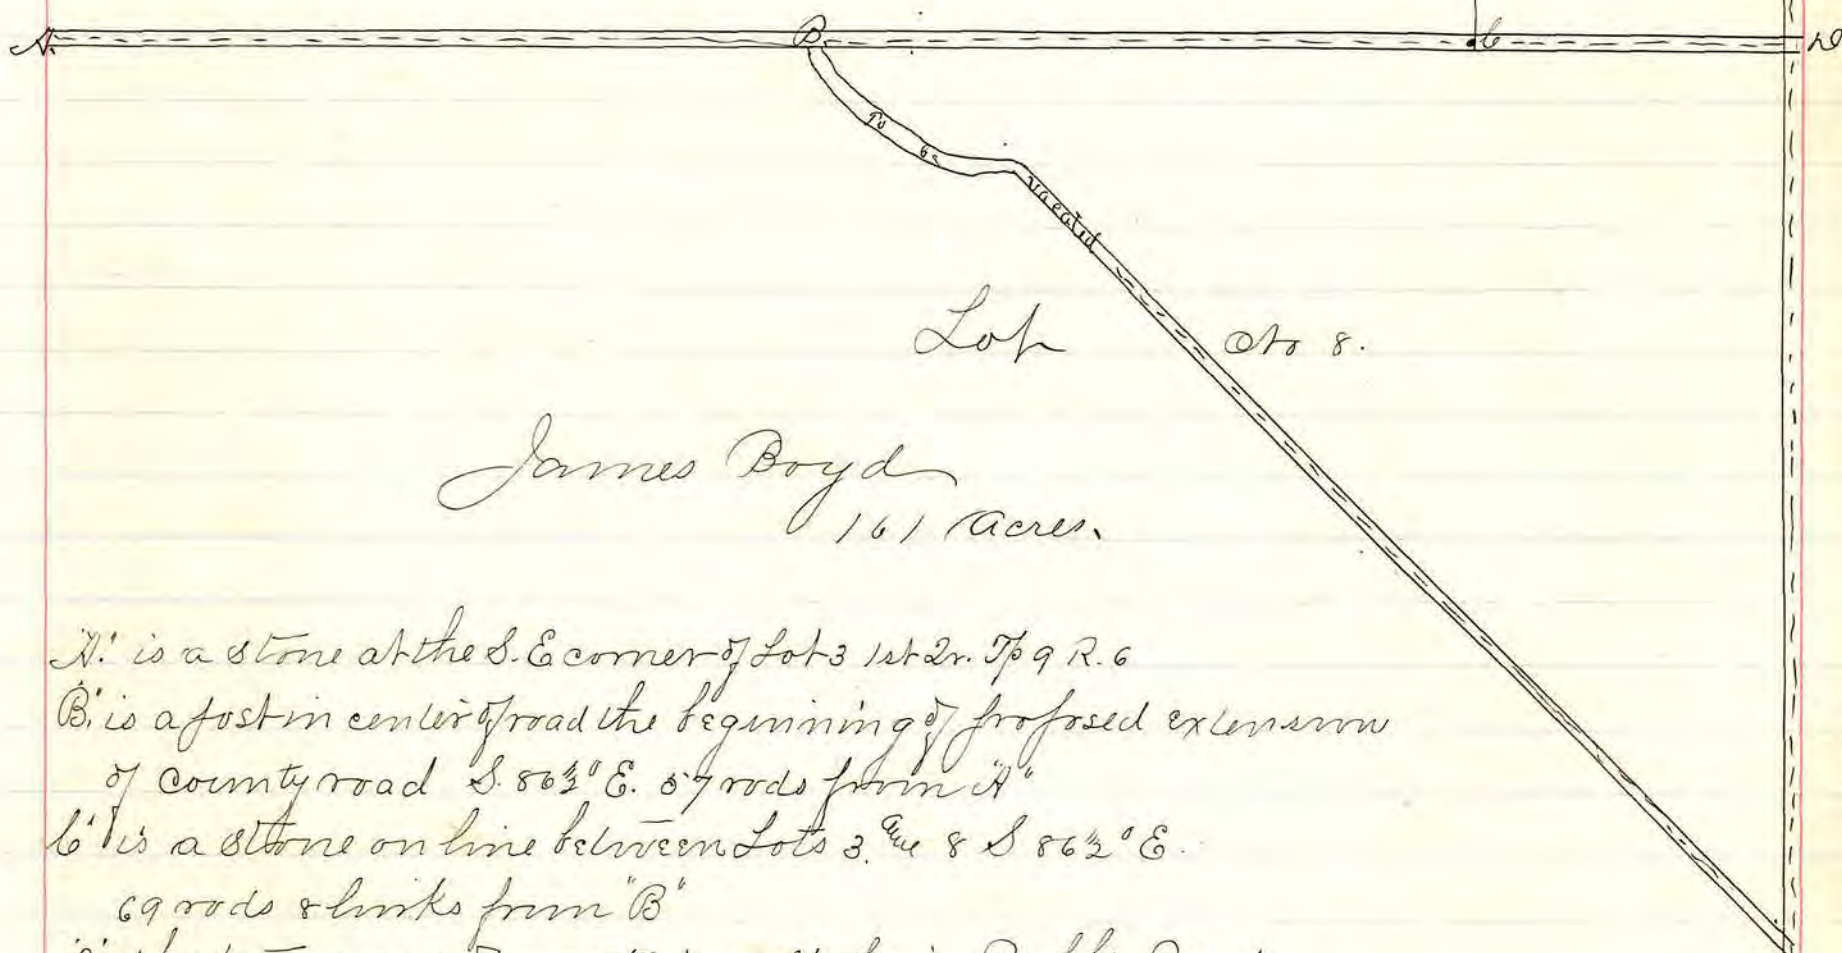 A. B C D
To
be
vacated
Lot No 8.
James Boyd
161 Acres.
"A" is a stone at the S. E corner of Lot 3 1st Qr. Tp 9 R. 6
"B" is a post in center of road the beginning of proposed extension
of county road S. 86½° E. 57 rods from "A"
"C" is a stone on line between Lots 3. and 8 S 86½° E.
69 rods 8 links from "B"